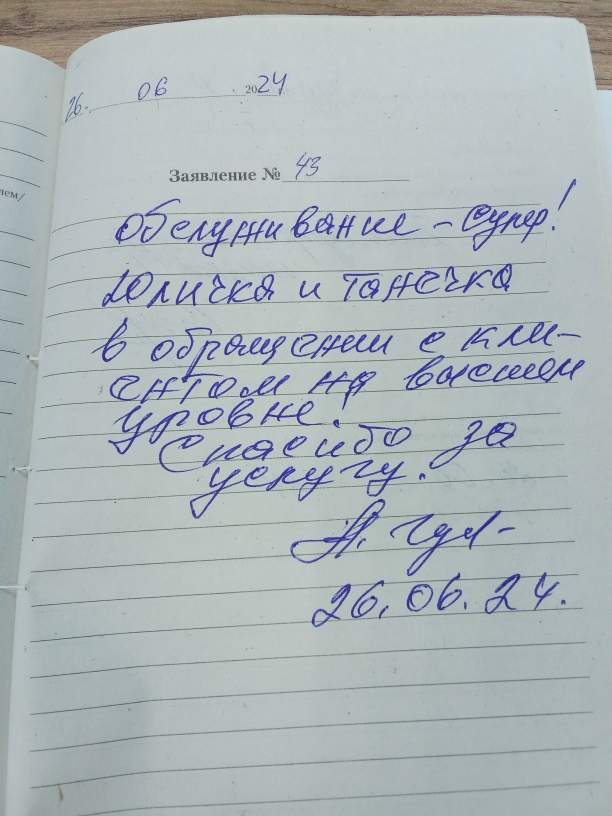 лем/
26. 06 2024
Заявление № 43
Обслуживание – супер!
Юличка и Танечка
в обращении с кли-
ентом на высшем
уровне!
Спасибо за
услугу.
26.06.24.